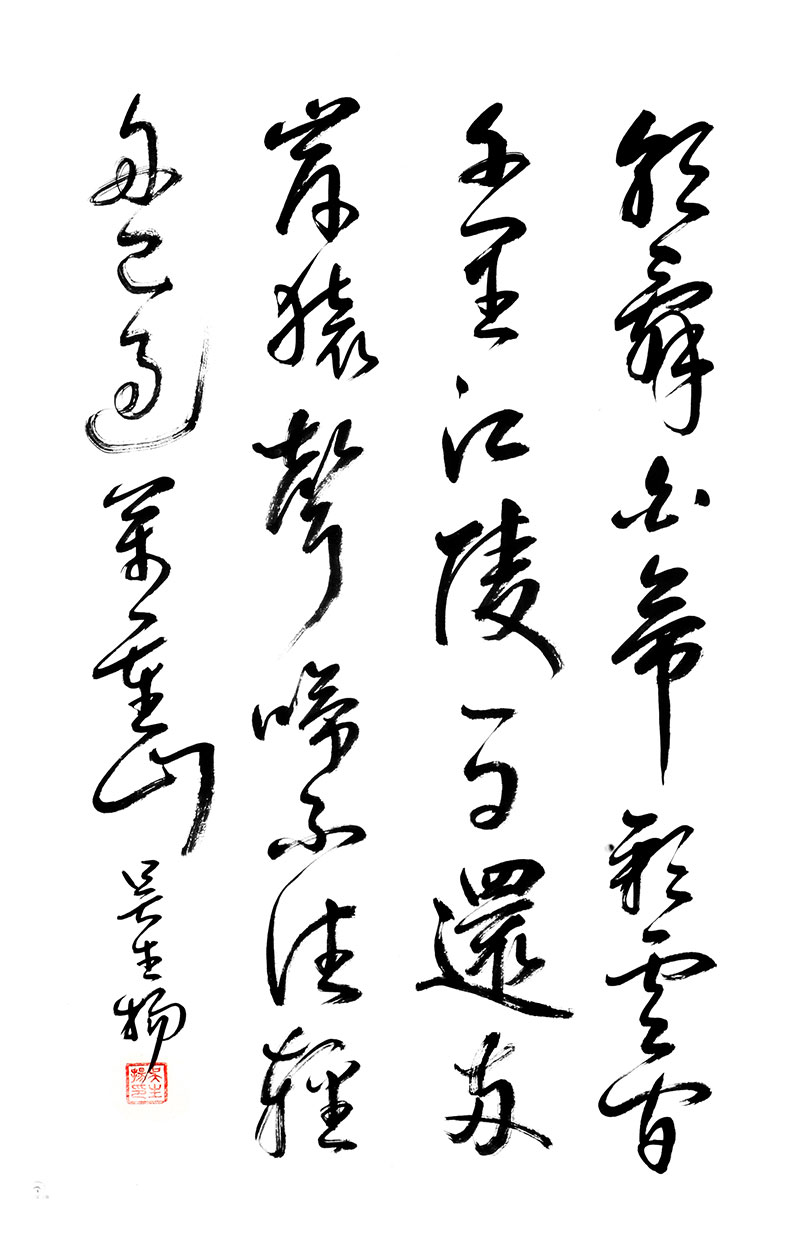 朝辭白帝彩雲間
千里江陵一日還兩
岸猿聲啼不住輕
舟已過萬重山
吳生揚
吳生揚印